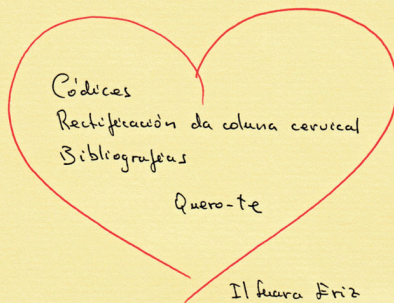 Códices
Rectificación da coluna cervical
Bibliografias
Quero-te
Eriz